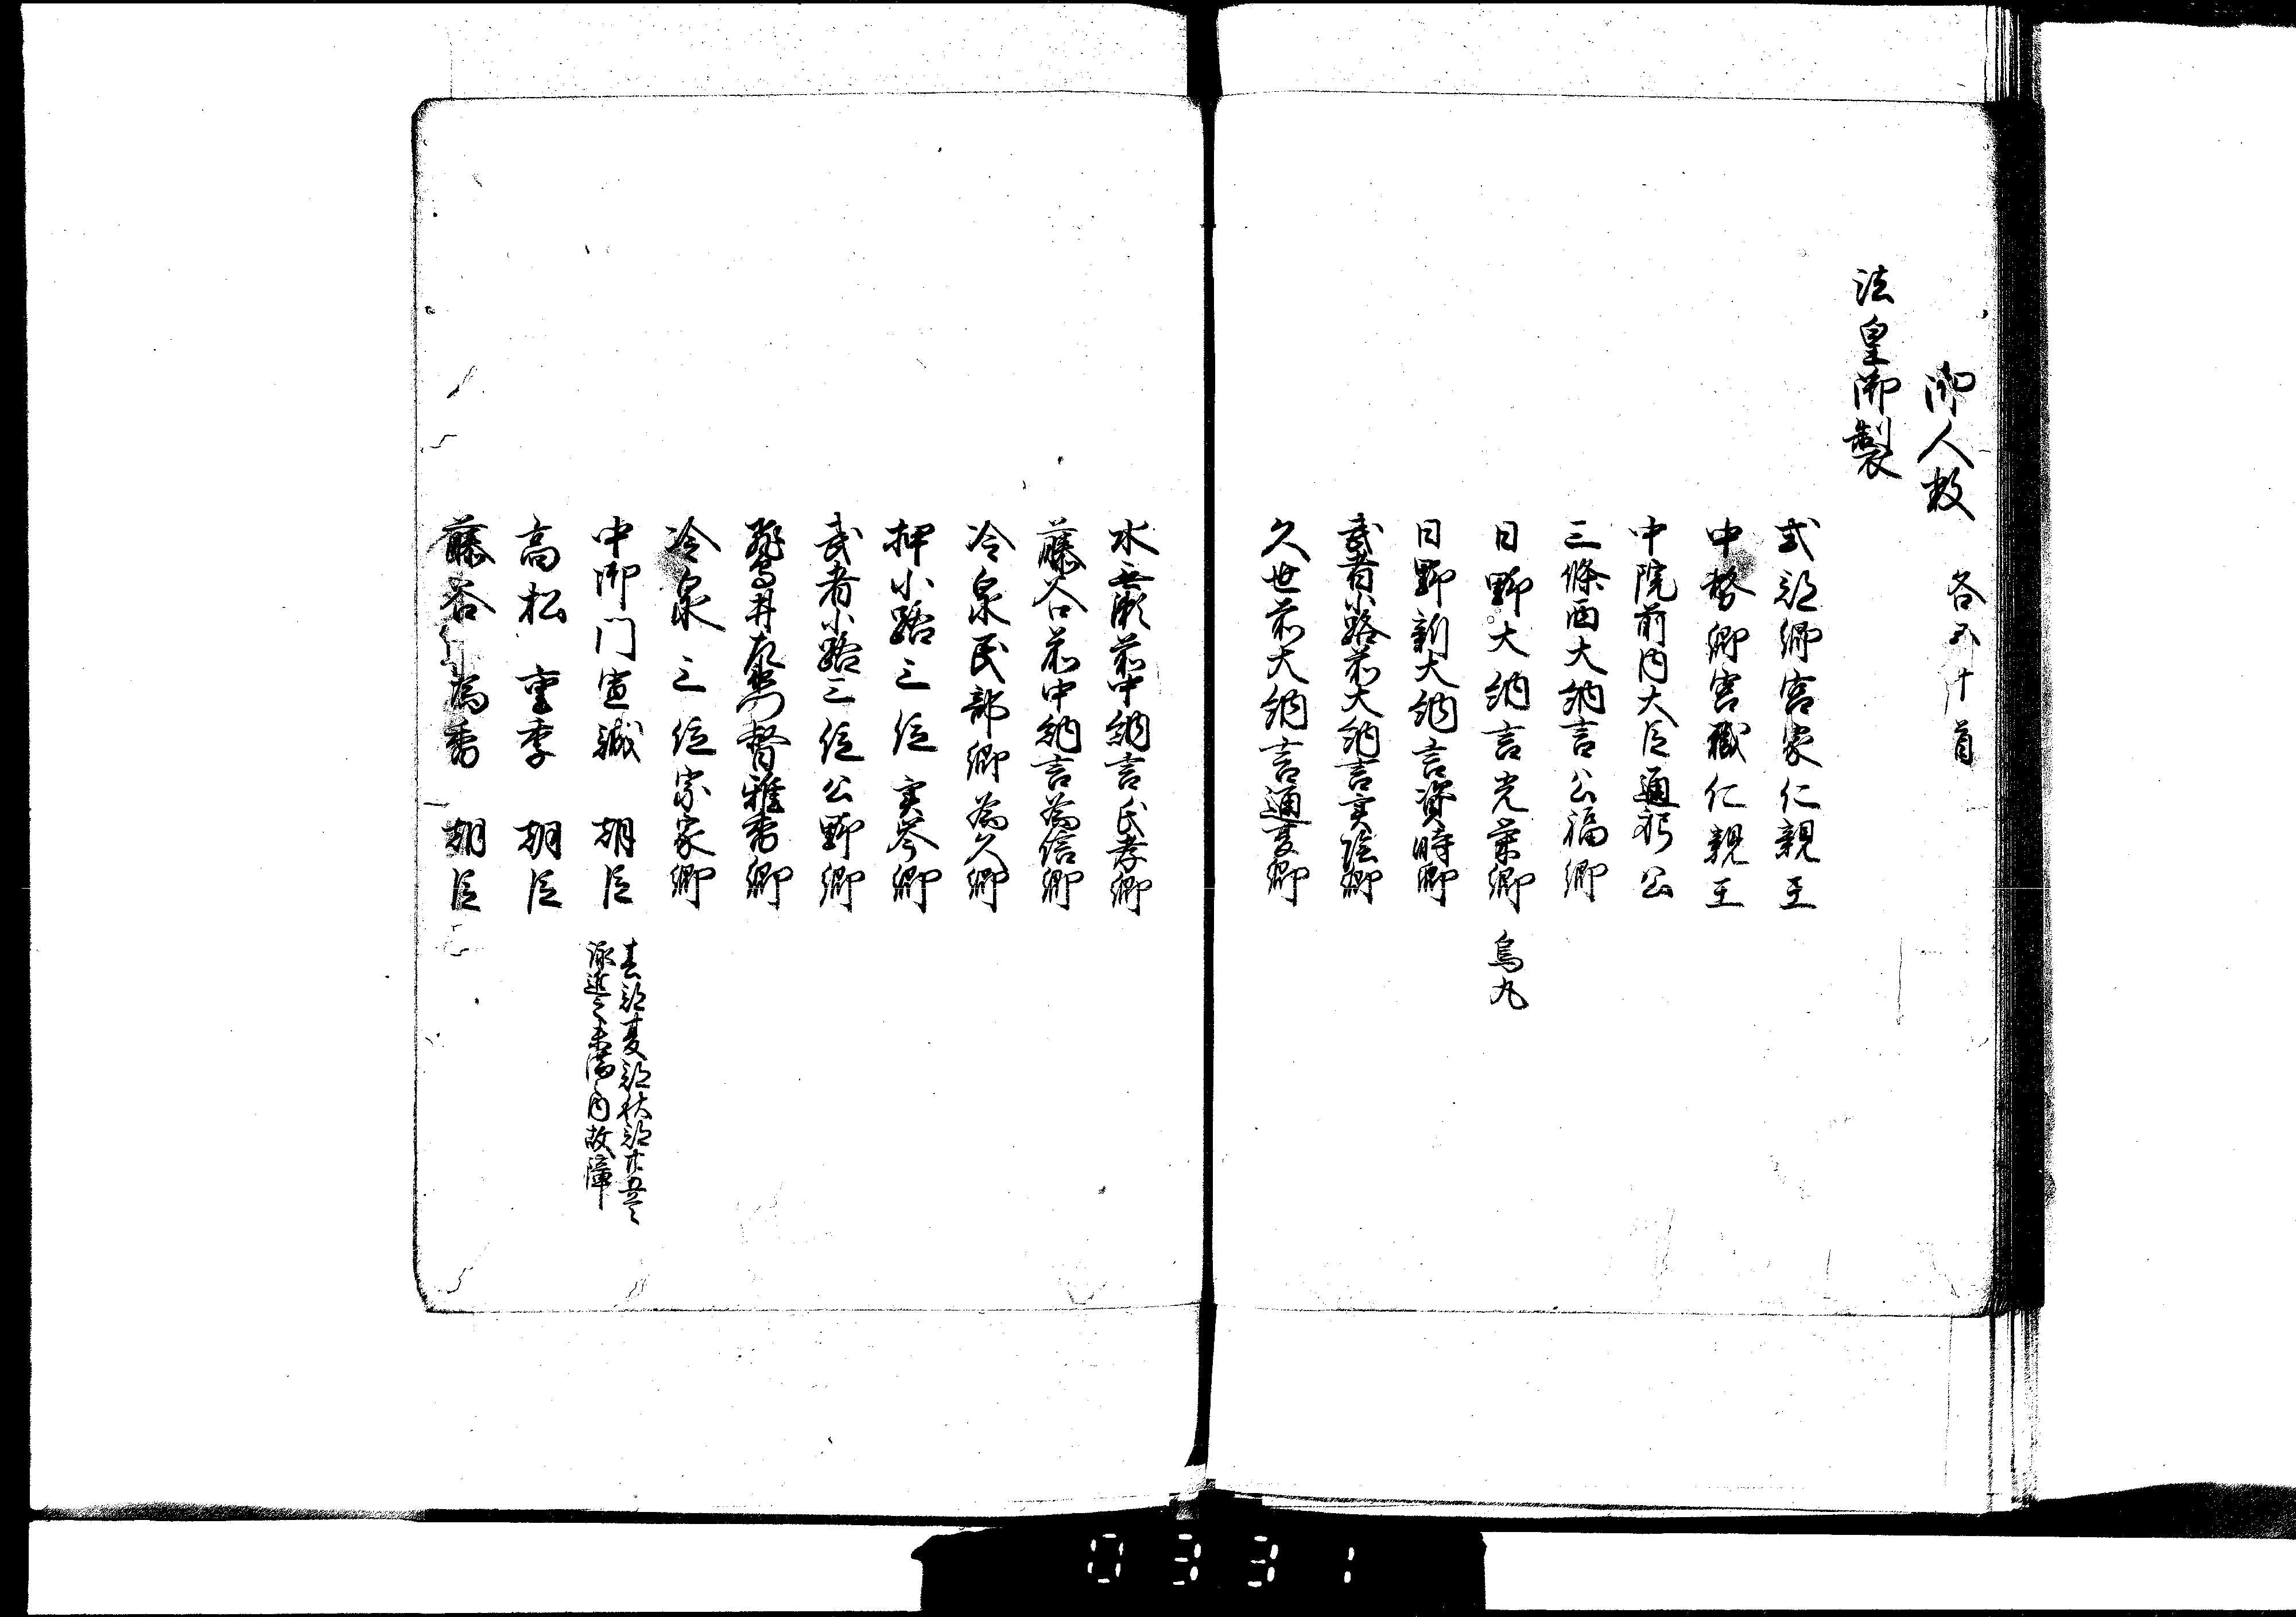 御人数　各五十首
法皇御製
式部卿宮家仁親王
中務卿宮職仁親王
中院前内大臣通躬公
三條西大納言公福卿
日野大納言光栄卿　烏丸
日野新大納言資時卿
武者小路前大納言実陰卿
久世前大納言通夏卿
水無瀬前中納言氏孝卿
藤谷前中納言為信卿
冷泉民部卿為久卿
押小路三位実岑卿
武者小路三位公野卿
飛鳥井左兵衛督雅香卿
冷泉三位宗家卿
中御門宣誠朝臣
春部夏部秋部廿五首
詠進之未満内故障
高松重季朝臣
藤谷為香朝臣
0331